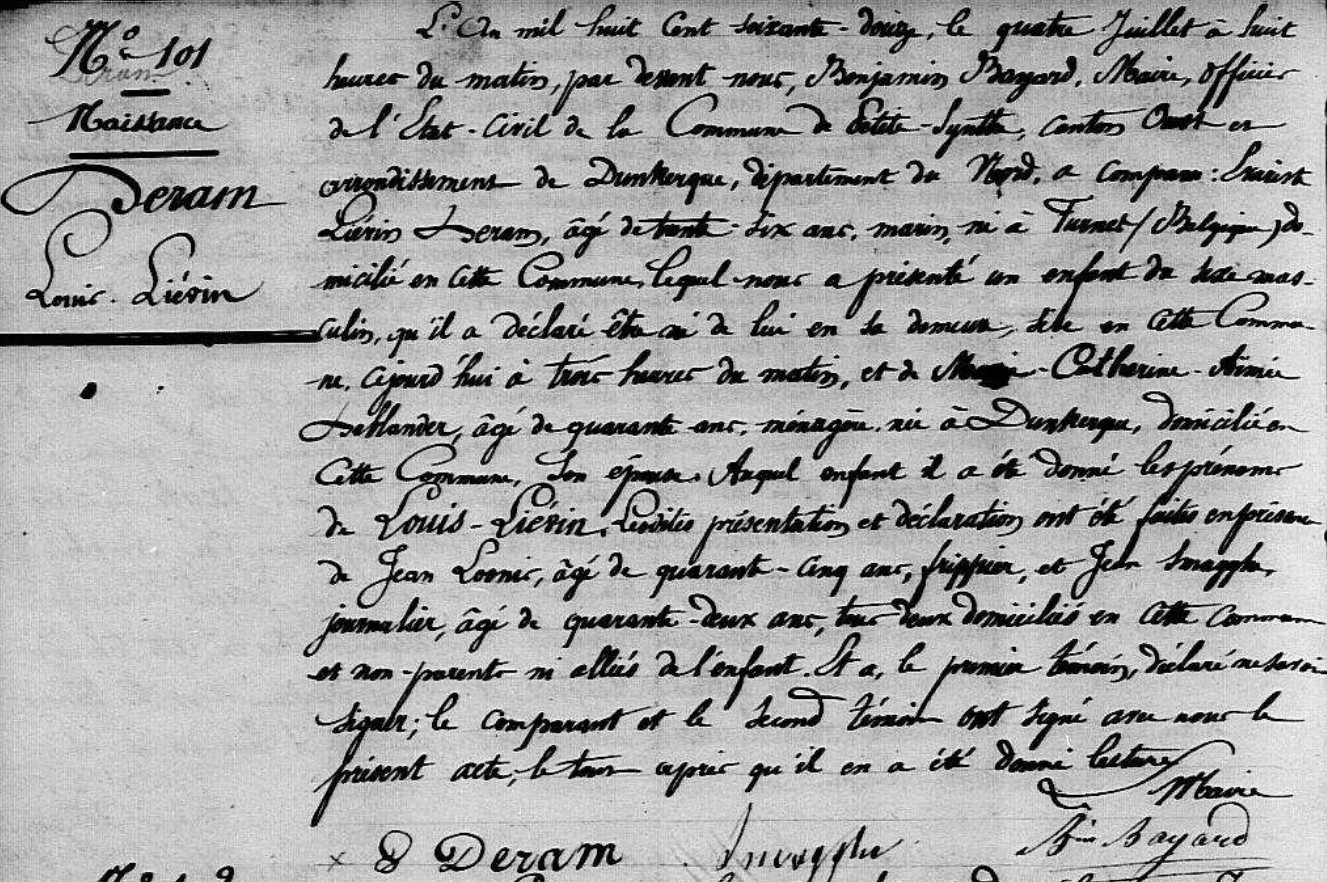 N° 101
Naissance
Deram
Louis-Liévin
L'An mil huit Cent soixante-douze, le quatre Juillet à huit
heures du matin, par devant nous, Benjamin Bayard, Maire, officier
de l'Etat-Civil de la Commune de Petite-Synthe, canton Ouest et
arrondissement de Dunkerque, département du Nord, a comparu:
Liévin Deram, âgé de trente-six ans, marin, né à Furnes (Belgique) do-
micilié en cette Commune, lequel nous a présenté un enfant du sexe mas-
culin, qu'il a déclaré être né de lui en sa demeure, sise en cette Commu-
ne, cejourd'hui à trois heures du matin, et de Marie-Catherine-Aimée
âgé de quarante ans, ménagère, née à Dunkerque, domiciliée en
cette Commune, son épouse. Auquel enfant il a été donné les prénoms
de Louis-Liévin. Lesdites présentation et déclaration ont été faites en présence
de Jean Loonis, âgé de quarante-cinq ans, frippier, et Jean Smagghe,
journalier, âgé de quarante-deux ans, tous deux domiciliés en cette Commune
et non-parents ni alliés de l'enfant. Et a, le premier témoin, déclaré ne savoir
signer; le comparant et le second témoin ont signé avec nous le
présent acte, le tout après qu'il en a été donné lecture
Maire
Deram Smagghe Bin Bayard